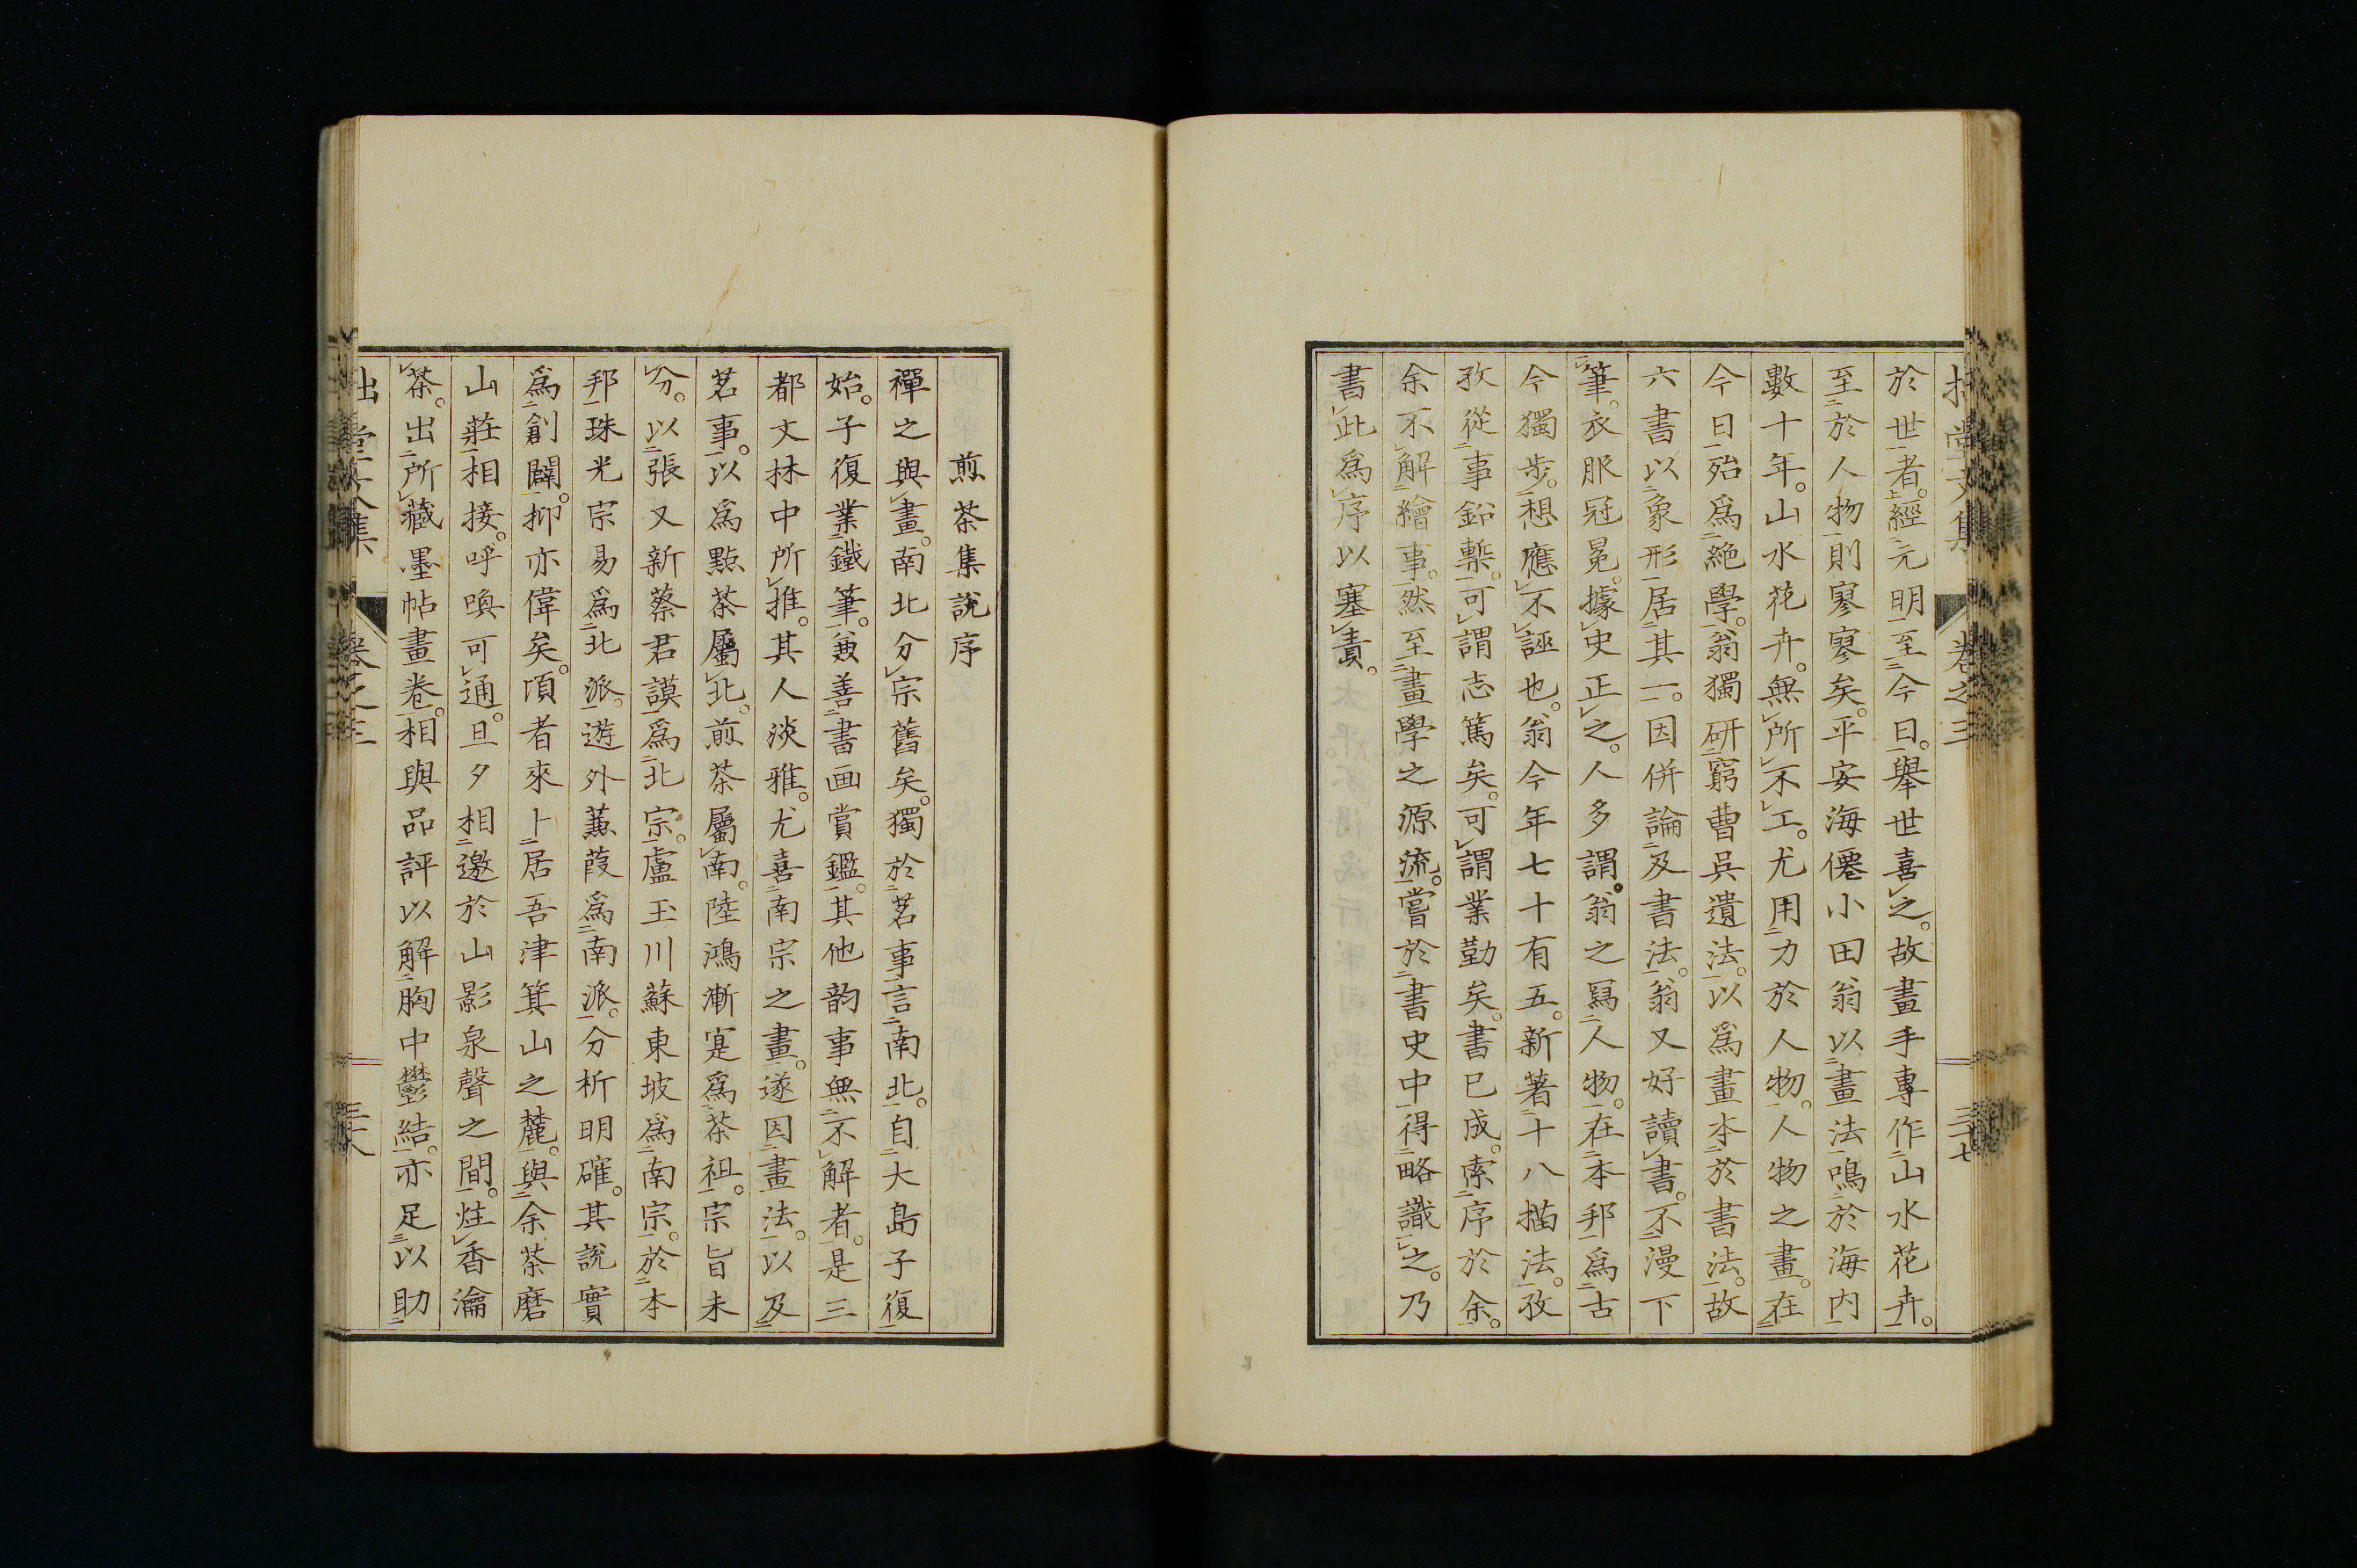 卷之三 三十七
於世者。經元明至今日。舉世喜之。故畫手專作山水花卉。
至於人物則寥寥矣。平安海僊小田翁以畫法鳴於海內
數十年。山水花卉。無所不工。尤用力於人物。人物之畫。在
今日殆爲絶學。翁獨研窮曹吳遺法。以爲畫本於書法。故
六書以象形居其一。因併論及書法。翁又好讀書。不漫下
筆。衣服冠冕。據史正之。人多謂。翁之寫人物。在本邦爲古
今獨步。想應不誣也。翁今年七十有五。新著十八描法。孜
孜從事鉛槧。可謂志篤矣。可謂業勤矣。書已成。索序於余。
余不解繪事。然至畫學之源流。嘗於書史中得略識之。乃
書此爲序以塞責。
煎茶集說序
禪之與畫。南北分宗舊矣。獨於茗事言南北。自大島子復
始。子復業鐵筆。兼善書画賞鑑。其他韵事無不解者。是三
都文林中所推。其人淡雅。尤喜南宗之畫。遂因畫法。以及
茗事。以爲點茶屬北。煎茶屬南。陸鴻漸寔爲茶祖。宗旨未
分。以張又新蔡君謨爲北宗。盧玉川蘇東坡爲南宗。於本
邦珠光宗易爲北派。遊外蒹葭爲南派。分析明確。其說實
爲創闢。抑亦偉矣。頃者來卜居吾津箕山之麓。與余茶磨
山莊相接。呼喚可通。旦夕相邀於山影泉聲之間。炷香瀹
茶。出所藏墨帖畫卷。相與品評以解胸中鬱結。亦足以助